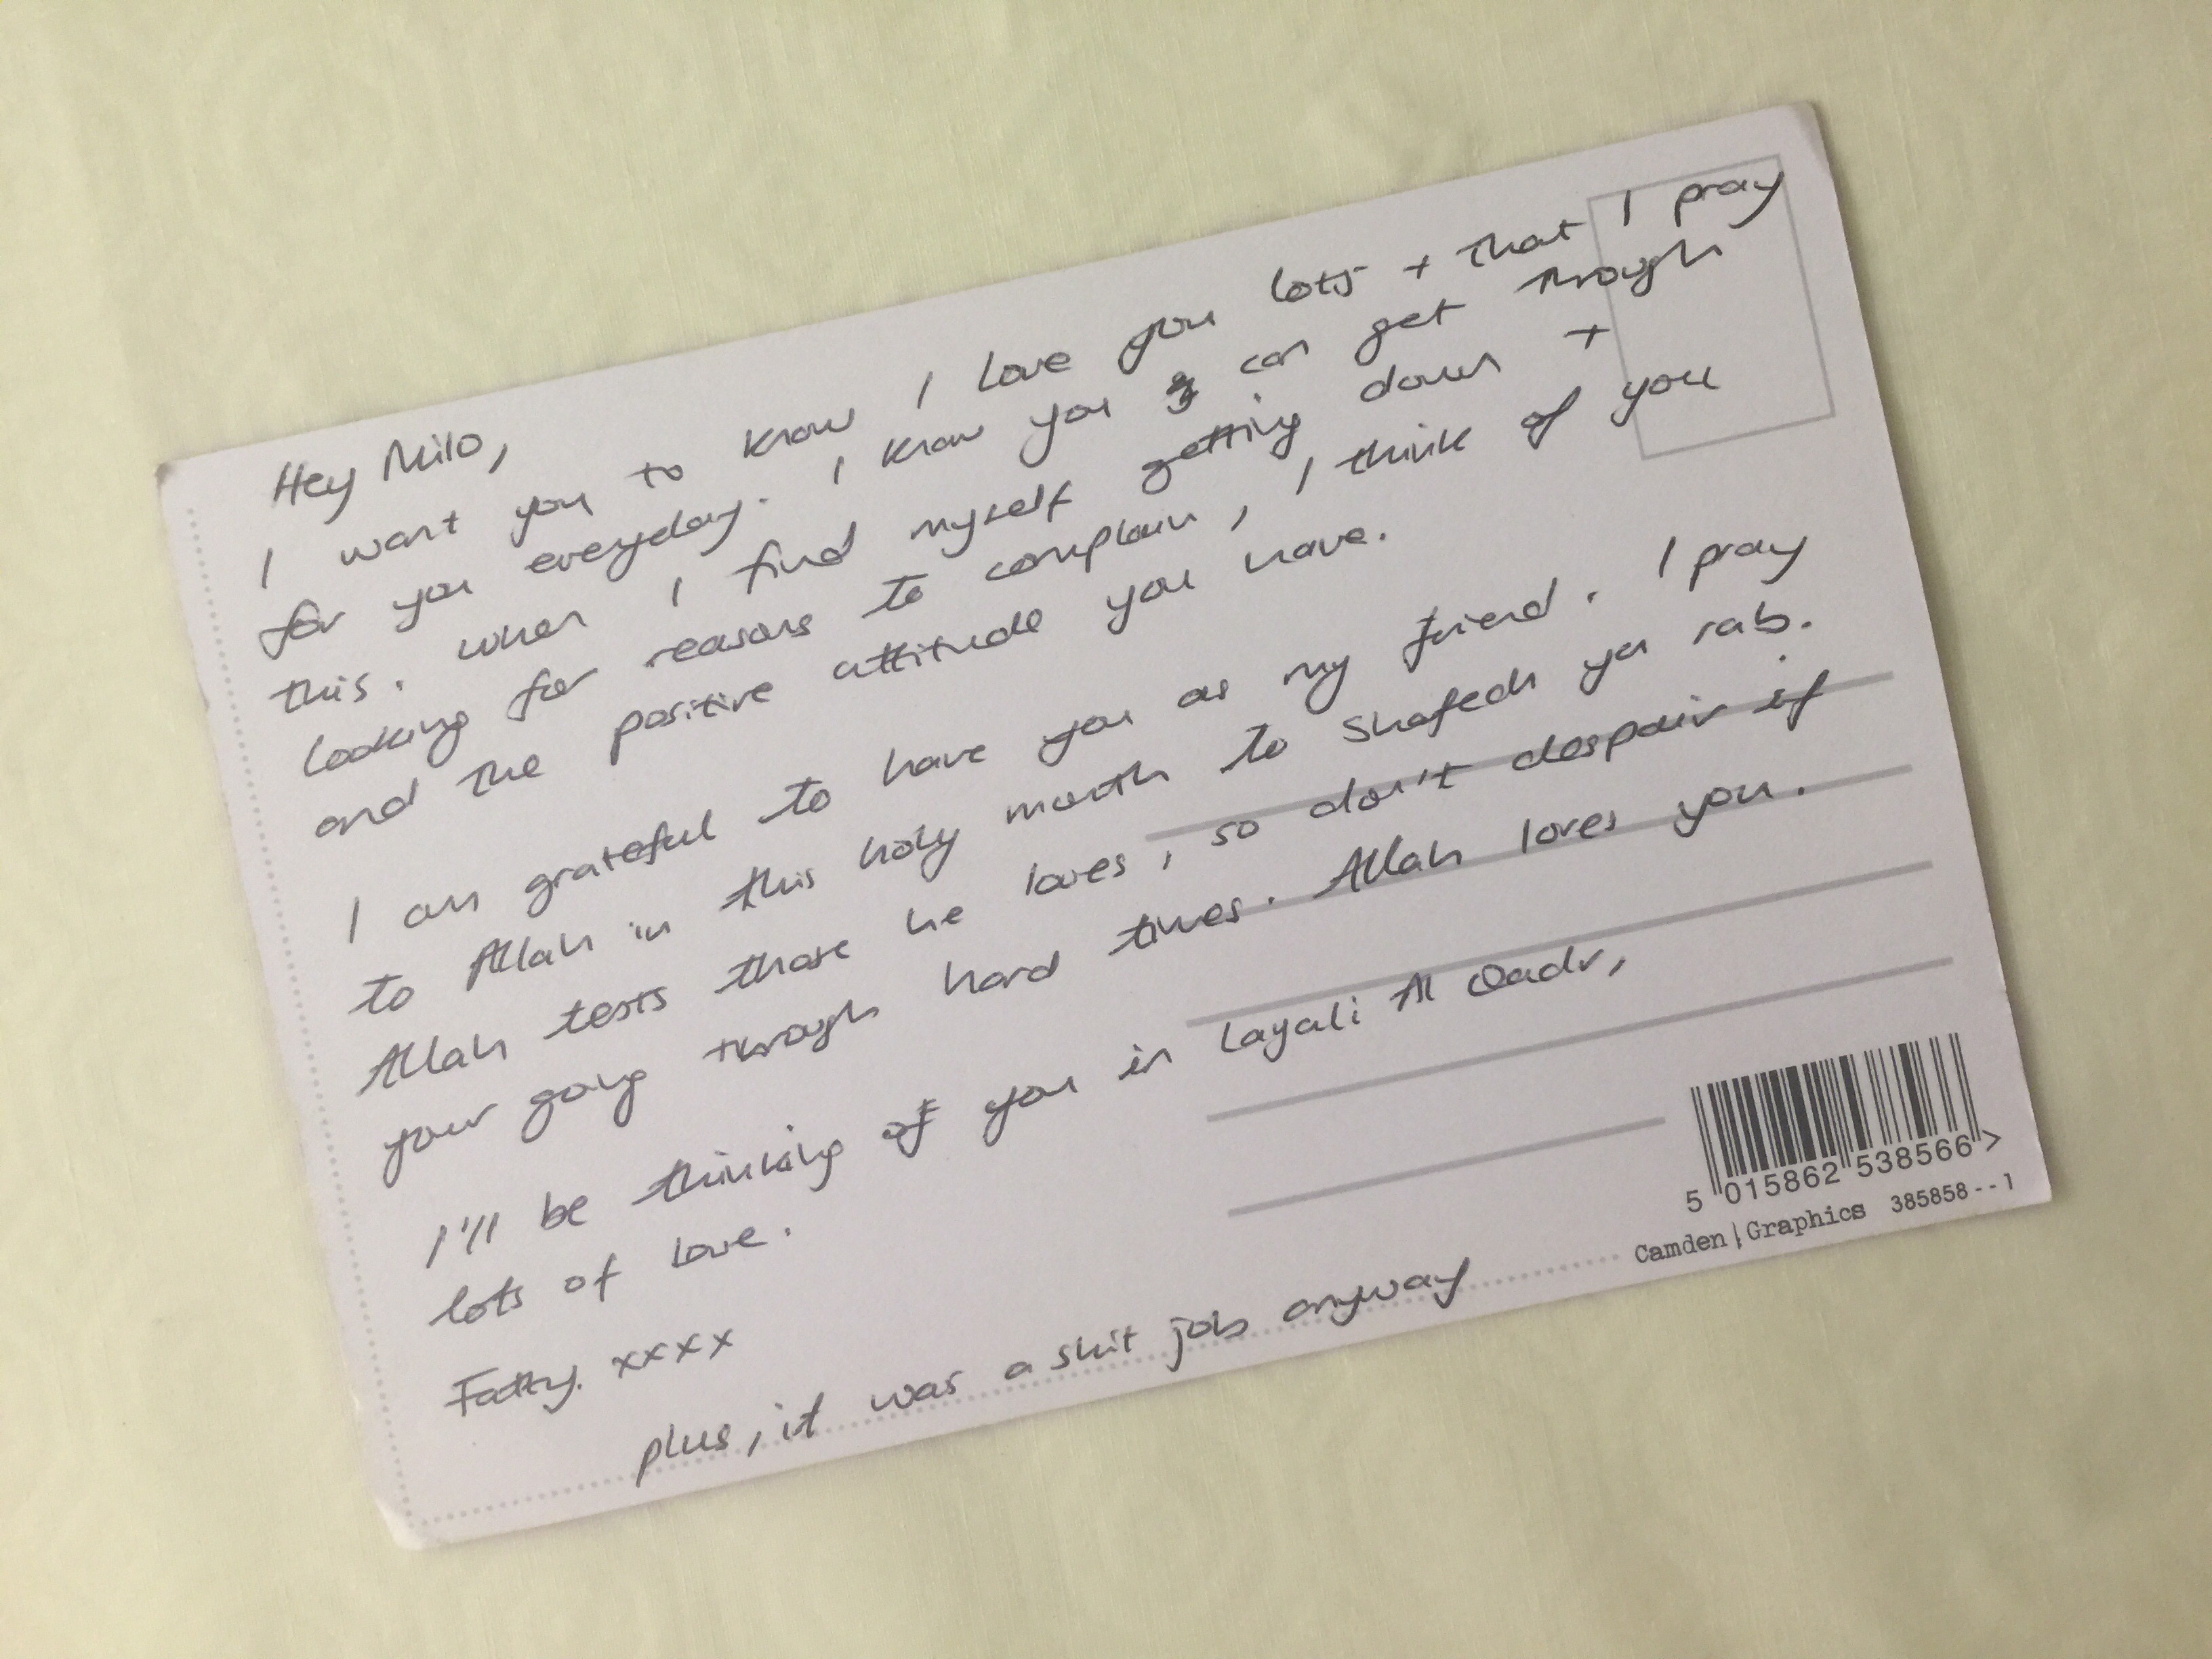 Hey Milo,
I want you to know I love you lots + that I pray
for you everyday. I know you can get through
this. when I find myself getting down +
looking for reasons to complain, I think of you
and the positive attitude you have.
I am grateful to have you as my friend. I pray
to Allah in this holy month to shafeeh ya rab.
Allah tests those he loves, so don't despair if
your going through hard times. Allah loves you.
I'll be thinking of you in Layali Al Qadr,
lots of love.
Fatty. xxxx
plus, it was a shit job anyway
5 015862 538566 >
Camden | Graphics 385858--1